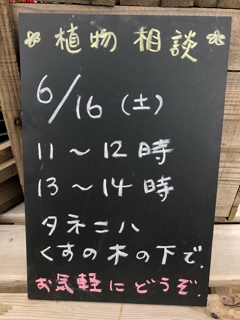 植物相談
6/16(土)
11~12時
13~14時
タネニハ
くすの木の下で.
お気軽にどうぞ.